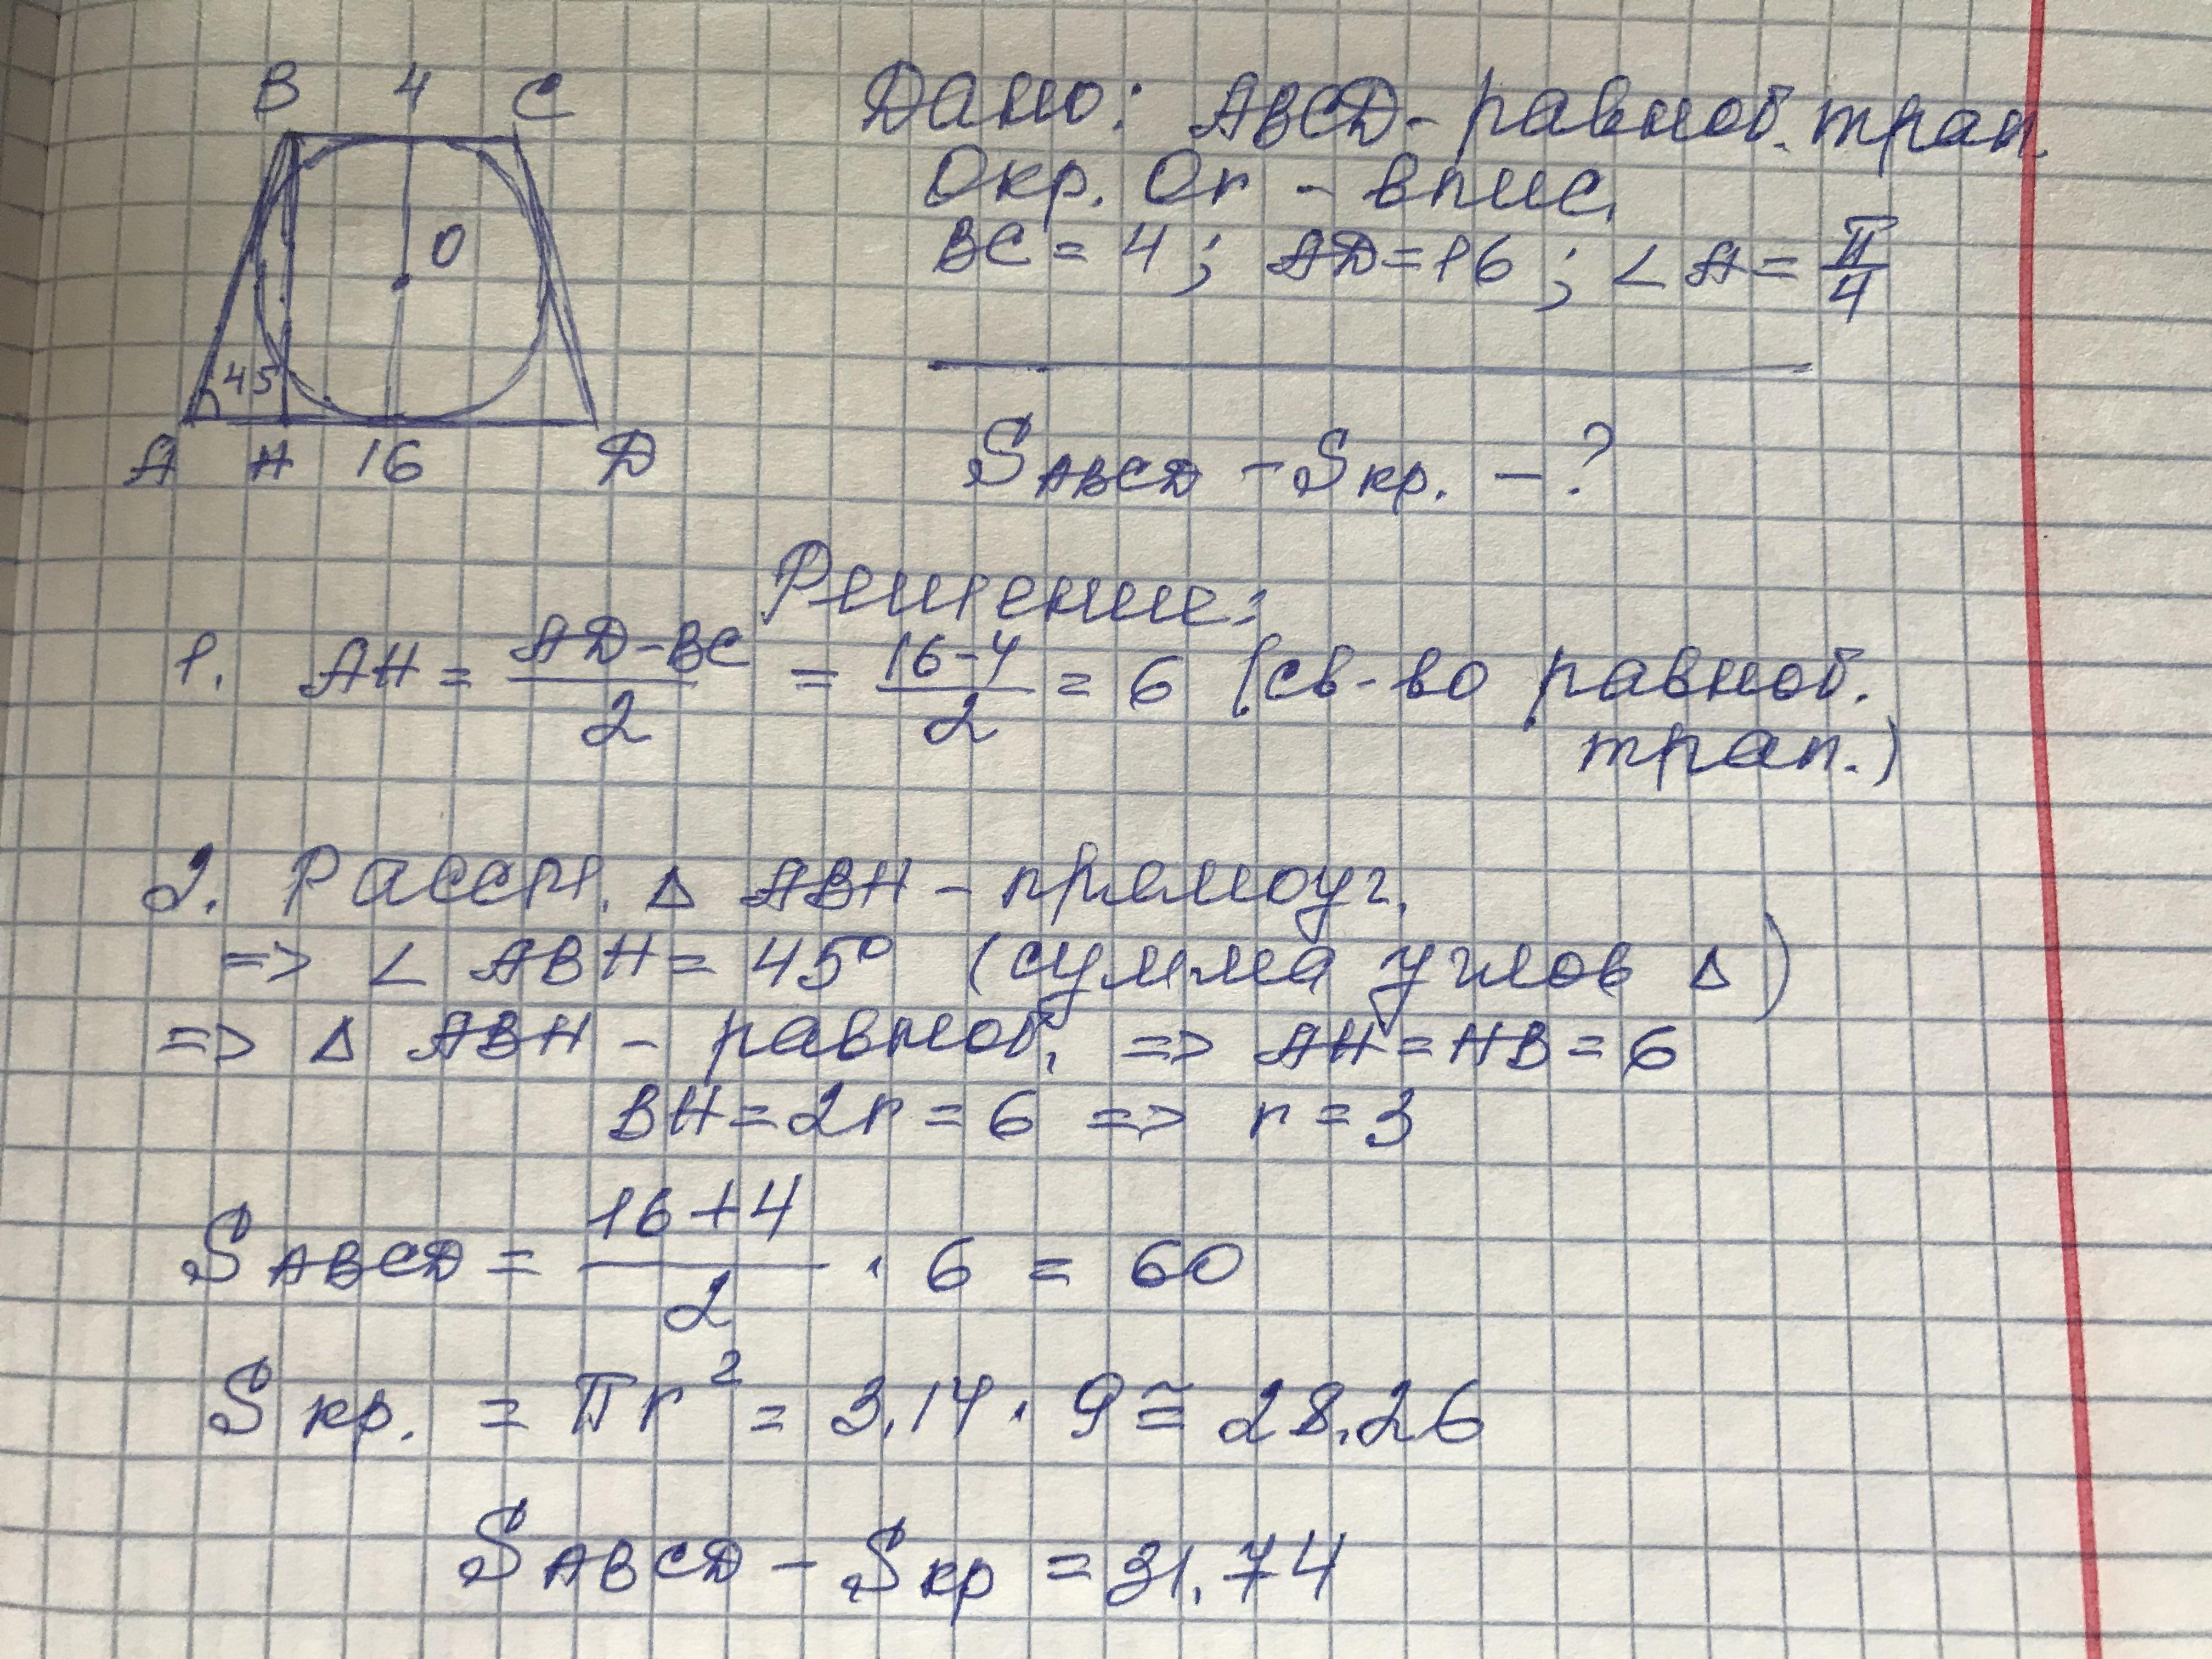 B 4 C
O
45
A H 16 D
Дано: ABCD - равноб. трап.
Окр. Or - впис.
BC = 4; AD = 16; ∠A = π/4
S ABCD - S кр. - ?
Решение:
1. AH = (AD - BC)/2 = (16 - 4)/2 = 6 (св-во равноб.
трап.)
2. Рассм. Δ ABH - прямоуг.
=> ∠ ABH = 45° (сумма углов Δ)
=> Δ ABH - равноб. => AH = HB = 6
BH = 2r = 6 => r = 3
S ABCD = (16 + 4)/2 · 6 = 60
S кр. = πr² = 3.14 · 9 ≅ 28.26
S ABCD - S кр = 31.74